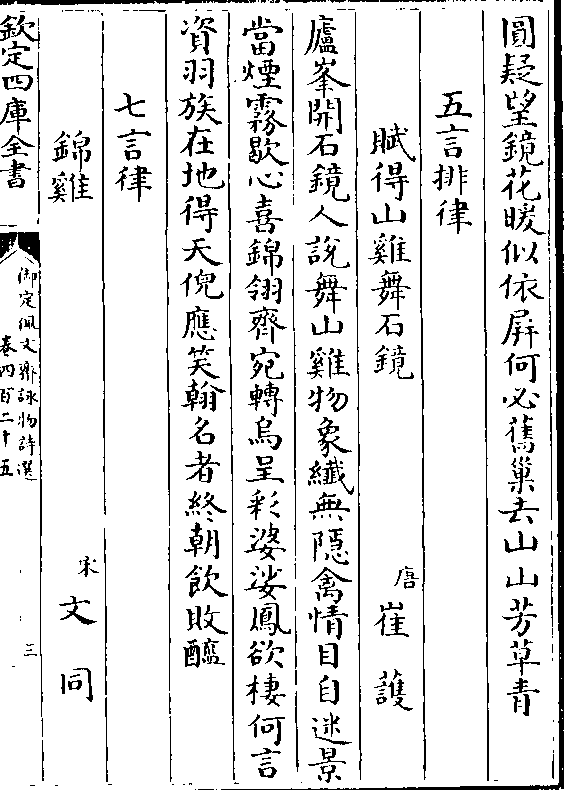 圓疑望鏡花暖似依屏何必舊巢去山山芳草青
五言排律
賦得山雞舞石鏡
唐 崔護
廬峯開石鏡人說舞山雞物象纖無隱禽情目自迷景
當煙霧歇心喜錦翎齊宛轉烏呈彩婆娑鳳欲棲何言
資羽族在地得天倪應笑翰名者終朝飲敗醯
七言律
錦雞
宋 文同
欽定四庫全書
御定佩文齋詠物詩選
卷四百二十五
三